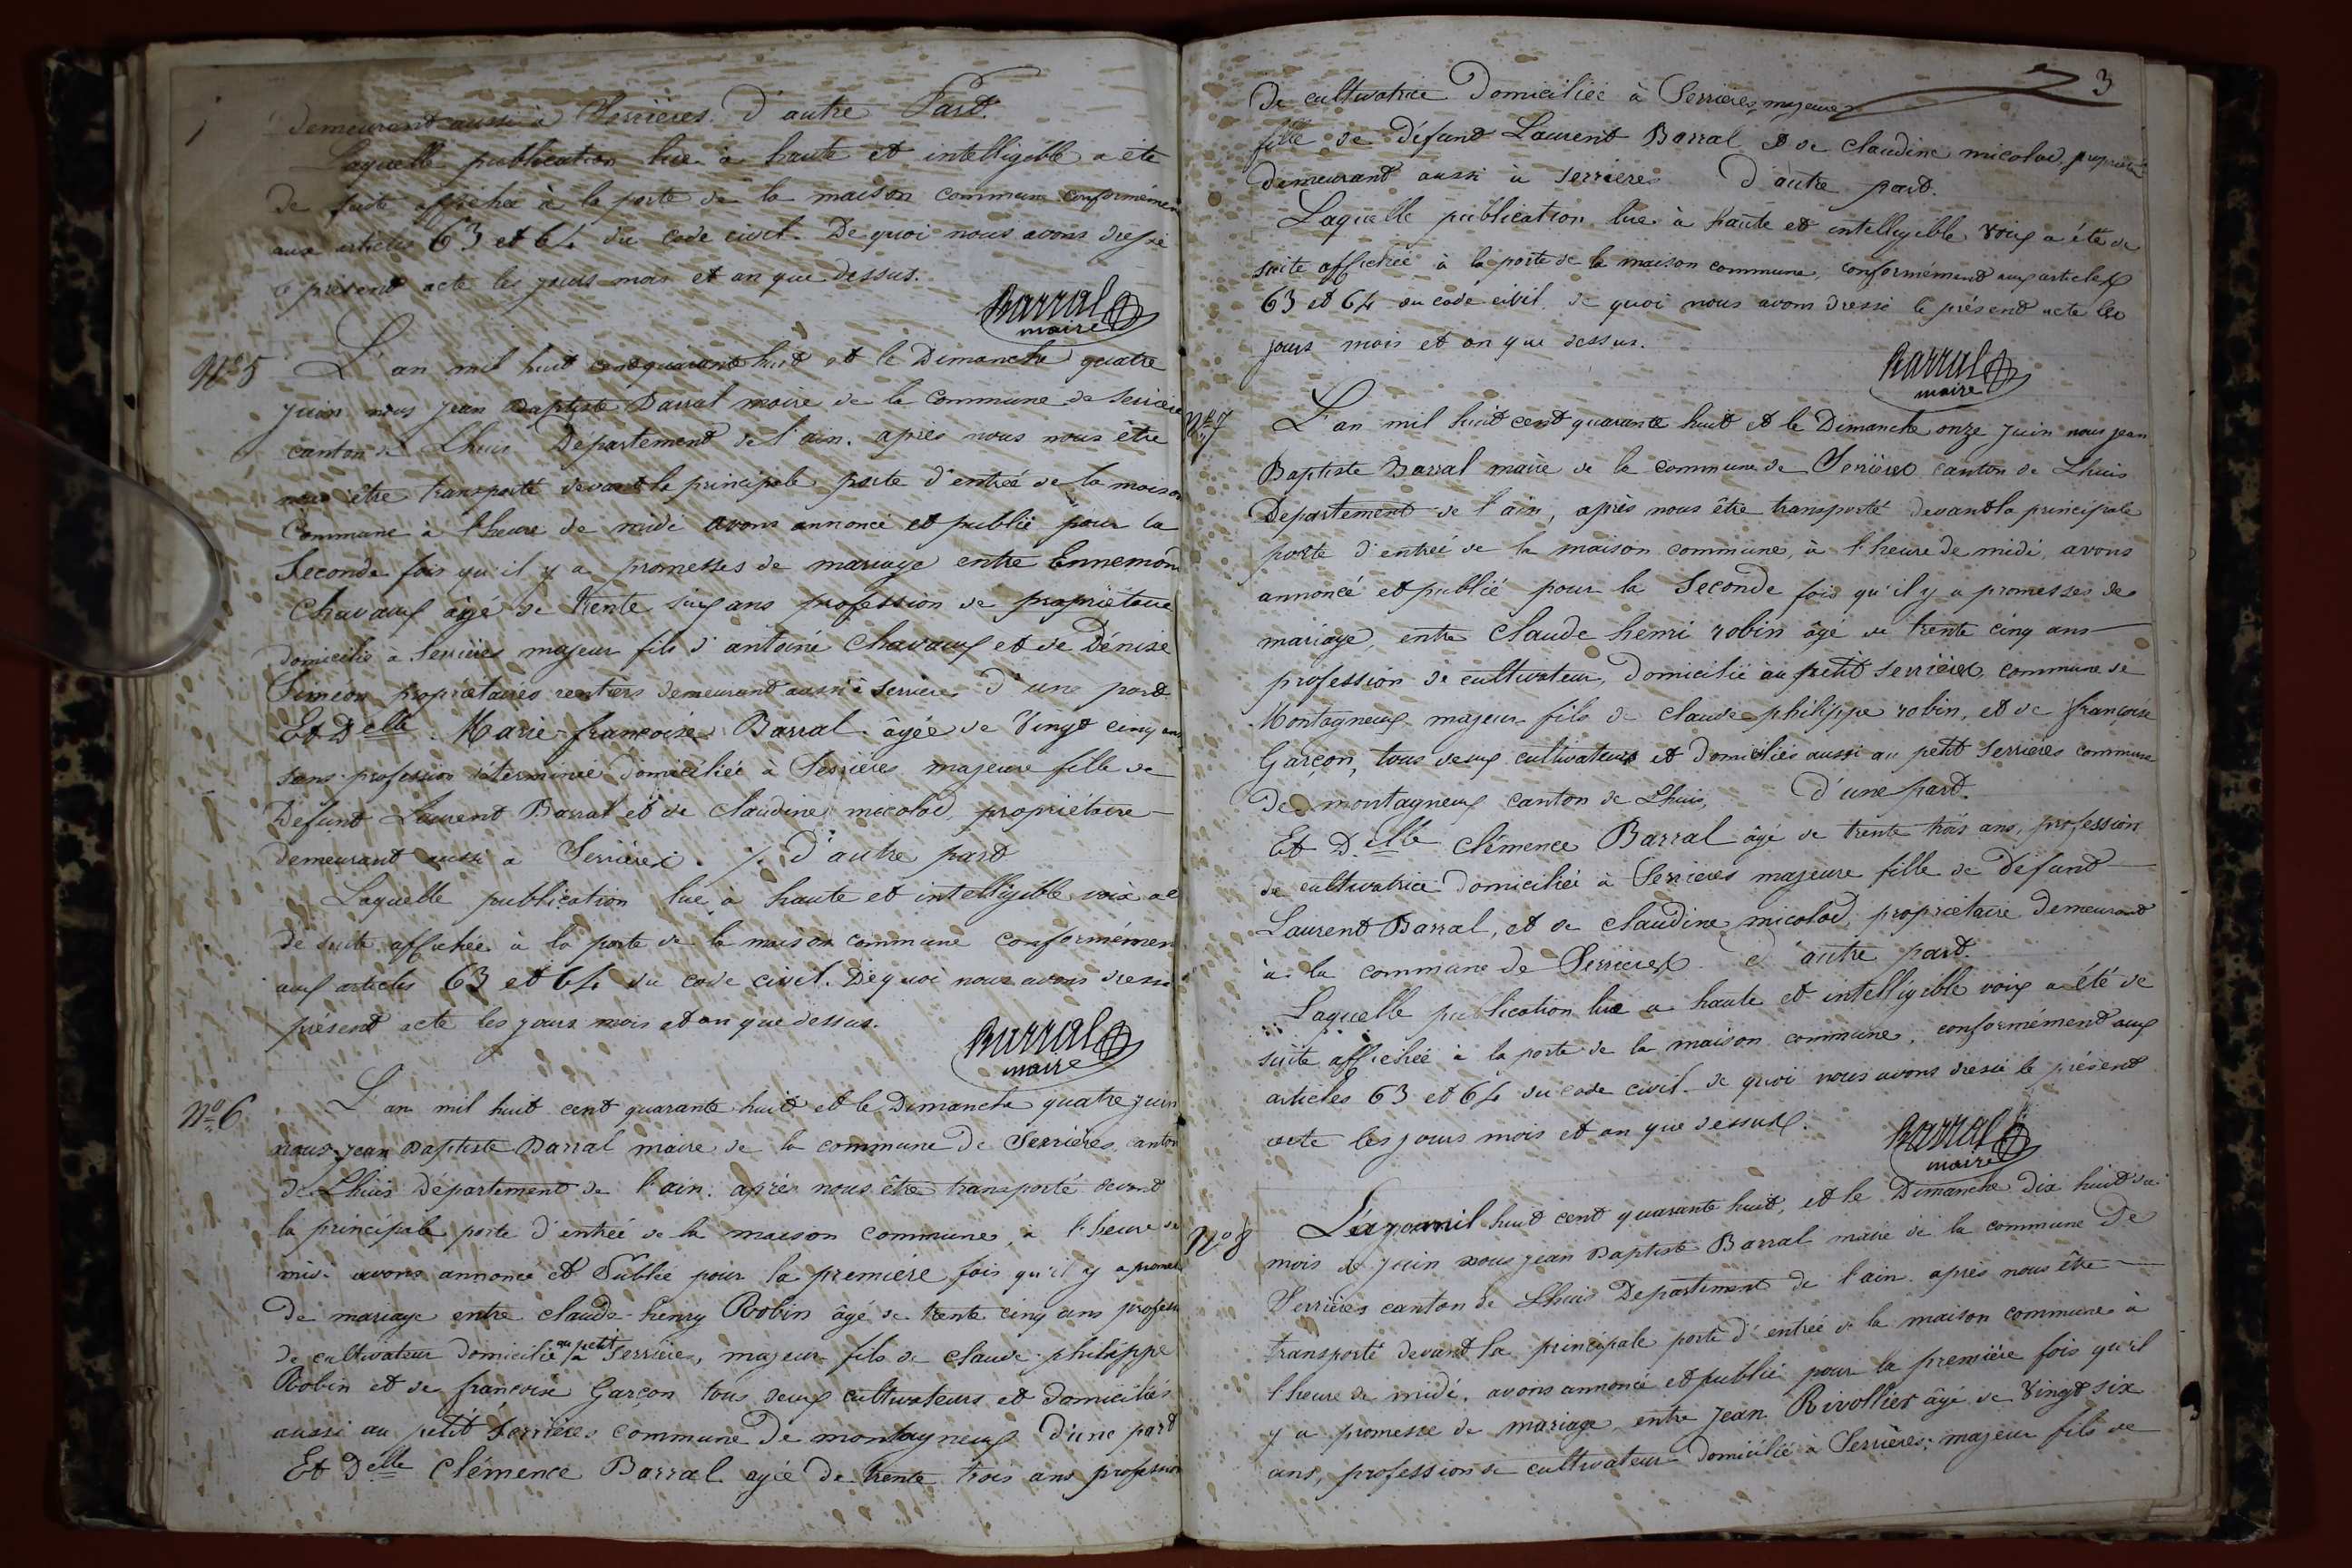 demeurant aussi à Serrières. D'autre Part.
Laquelle publication lue à haute et intelligible a été
de suite affichée à la porte de la maison commune conformémen
aux articles 63 et 64 du code civil. De quoi nous avons dressé
le présent acte les jours mois et an que dessus.
Barral
maire
N° 5 L'an mil huit cent quarante huit et le Dimanche quatre
juin nous jean Baptiste Barral maire de la Commune de Serrière
canton de Lhuis Département de l'ain. après nous nous être
nous être transporté devant la principale porte d'entrée de la maison
Commune à l'heure de midi avons annoncé et publié pour la
Seconde fois qu'il y a promesses de mariage entre Ennemond
Chavaux âgé de trente six ans profession de propriétaire
domicilié à Serrières majeur fils d'antoine Chavaux et de Dénise
Siméon propriétaires rentiers demeurant aussi à Serrières D'une part
Et Delle. Marie-françoise Barral âgée de Vingt cinq ans
sans profession déterminée domiciliée à Serrières majeure fille de
Défunt Laurent Barral et de Claudine micolod propriétaire
demeurant aussi à Serrières. D'autre part
Laquelle publication lue à haute et intelligible voix a é
de suite affichée à la porte de la maison commune conformémen
aux articles 63 et 64 du code civil. De quoi nous avons dressé
présent acte les jours mois et an que dessus.
Barral
maire
N° 6 L'an mil huit cent quarante huit et le Dimanche quatre juin
nous jean Baptiste Barral maire de la commune de Serrières canton
de Lhuis Département de l'ain. après nous être transporté devant
la principale porte d'entrée de la maison commune, à l'heure de
midi avons annoncé et Publié pour la première fois qu'il y a promes
de mariage entre claude-henry Robin âgé de trente cinq ans profess
de cultivateur domicilié au petit Serrières, majeur fils de claude philippe
Robin et de françoise Garçon tous deux cultivateurs et domiciliés
aussi au petit Serrières commune de montagneux D'une part
Et Delle Clémence Barral agée de trente trois ans profession
3
de cultivatrice Domiciliée à Serrières, majeure
fille de défunt Laurent Barral et de claudine micolod propriétaire
demeurant aussi à Serrières D'autre part.
Laquelle publication lue à haute et intelligible voix a été de
suite affichée à la porte de la maison commune, conformément aux articles
63 et 64 du code civil. de quoi nous avons dressé le présent acte les
jours mois et an que dessus.
Barral
maire
N° 7 L'an mil huit cent quarante huit et le Dimanche onze juin nous jean
Baptiste Barral maire de la commune de Serrières canton de Lhuis
Département de l'ain, après nous être transporté devant la principale
porte d'entrée de la maison commune, à l'heure de midi, avons
annoncé et publié pour la Seconde fois qu'il y a promesses de
mariage, entre claude henri robin âgé de trente cinq ans
profession de cultivateur, domicilié au petit Serrières, commune de
Montagneux majeur fils de claude philippe robin, et de françoise
Garçon, tous deux cultivateurs et domiciliés aussi au petit Serrières commune
de montagneux canton de Lhuis, D'une part.
Et D.elle Clémence Barral âgé de trente trois ans, profession
de cultivatrice Domiciliée à Serrières majeure fille de Défunt
Laurent Barral, et de claudine micolod, propriétaire demeurant
à la commune de Serrières. D'autre part.
Laquelle publication lue a haute et intelligible voix a été de
suite affichée à la porte de la maison commune, conformément aux
articles 63 et 64 du code civil. de quoi nous avons dressé le présent
acte les jours mois et an que dessus.
Barral
maire
N° 8 mil huit cent quarante huit, et le Dimanche dix huit du
mois de juin nous jean Baptiste Barral maire de la commune de
Serrières canton de Lhuis Département de l'ain. après nous être
transporté devant la principale porte d'entrée de la maison commune à
l'heure de midi, avons annoncé et publié pour la première fois qu'il
y a promesse de mariage entre jean Rivollier âgé de Vingt six
ans, profession de cultivateur domicilié à Serrières; majeur fils de